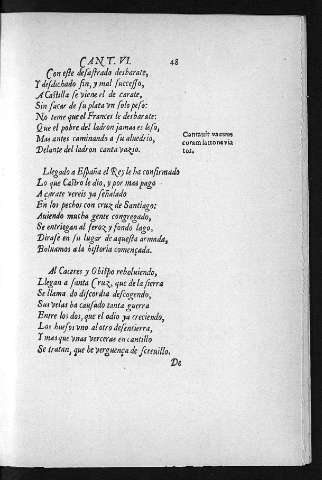 CANT. VI. 48
Con este desastrado desbarate,
Y desdichado fin, y mal successo,
A Castilla se viene el de çarate,
Sin sacar de su plata vn solo peso:
No teme que el Frances le desbarate:
Que el pobre del ladron jamas es leso,
Mas antes caminando a su aluedrio,
Delante del ladron canta vazio.
Cantauit vacuus
coram latrone via
tor.
Llegado a España el Rey le ha confirmado
Lo que Castro le dio, y por mas pago
A çarate vereis ya señalado
En los pechos con cruz de Santiago:
Auiendo mucha gente congregado,
Se entriegan al feroz y fondo lago,
Dirase en su lugar de aquesta armada,
Boluamos a la historia començada.
Al Caceres y Obispo reboluiendo,
Llegan a santa Cruz, que de la sierra
Se llama do discordia descogendo,
Sus velas ha causado tanta guerra
Entre los dos, que el odio ya creciendo,
Los huesos vno al otro desentierra,
Y mas que vnas verceras en cantillo
Se tratan, que he verguença de screuillo.
De